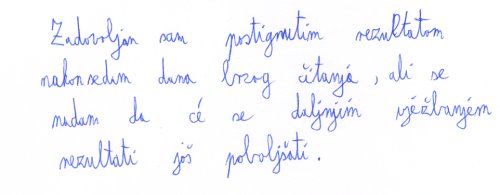 Zadovoljan sam postignutim rezultatom
nakon sedam dana brzog čitanja, ali se
nadam da će se daljnjim vježbanjem
rezultati još poboljšati.